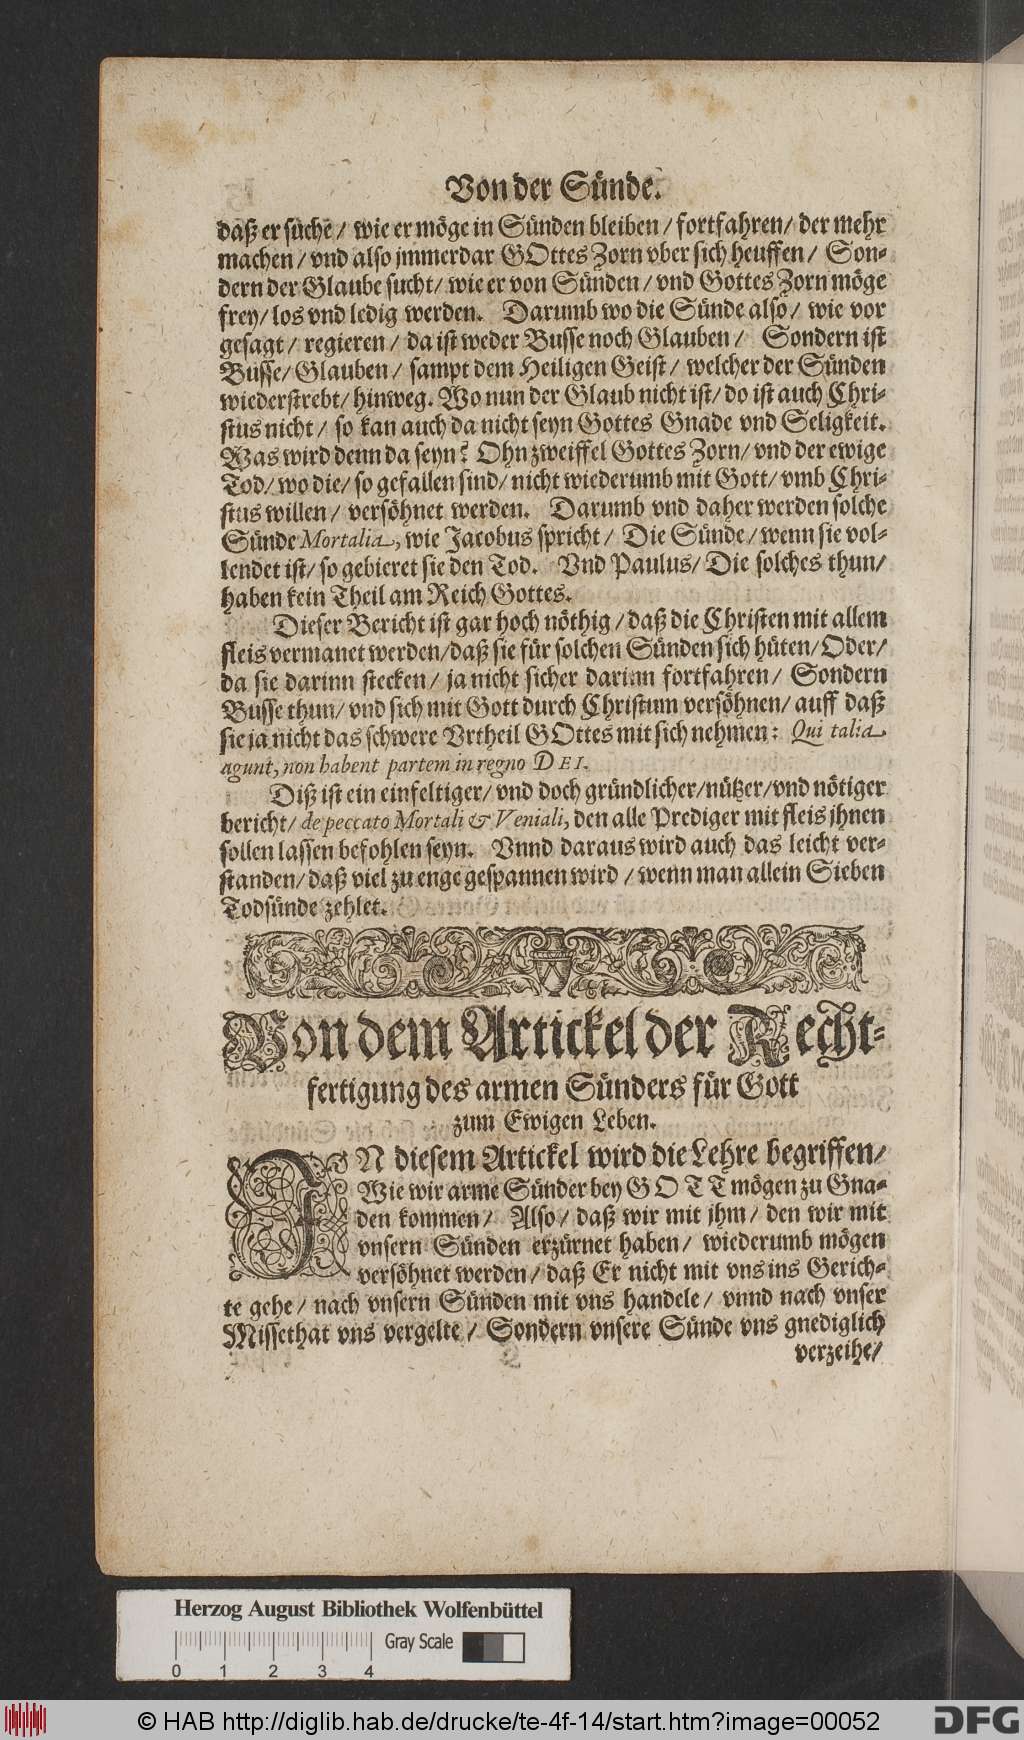 Von der Sünde.
daß er suche / wie er möge in Sünden bleiben / fortfahren / der mehr
machen / vnd also jmmerdar GOttes Zorn vber sich heuffen / Son-
dern der Glaube sucht / wie er von Sünden / vnd Gottes Zorn möge
frey / los vnd ledig werden. Darumb wo die Sünde also / wie vor
gesagt / regieren / da ist weder Busse noch Glauben / Sondern ist
Busse / Glauben / sampt dem Heiligen Geist / welcher der Sünden
wiederstrebt / hinweg. Wo nun der Glaub nicht ist / do ist auch Chri-
stus nicht / so kan auch da nicht seyn Gottes Gnade vnd Seligkeit.
Was wird denn da seyn? Ohn zweiffel Gottes Zorn / vnd der ewige
Tod / wo die / so gefallen sind / nicht wiederumb mit Gott / vmb Chri-
stus willen / versöhnet werden. Darumb vnd daher werden solche
Sünde Mortalia, wie Jacobus spricht / Die Sünde / wenn sie vol-
lendet ist / so gebieret sie den Tod. Vnd Paulus / Die solches thun /
haben kein Theil am Reich Gottes.
Dieser Bericht ist gar hoch nöthig / daß die Christen mit allem
fleis vermanet werden / daß sie für solchen Sünden sich hüten / Oder /
da sie darinn stecken / ja nicht sicher darinn fortfahren / Sondern
Busse thun / vnd sich mit Gott durch Christum versöhnen / auff daß
sie ja nicht das schwere Vrtheil GOttes mit sich nehmen: Qui talia
agunt, non habent partem in regno DEI.
Diß ist ein einfeltiger / vnd doch gründlicher / nützer / vnd nötiger
bericht / de peccato Mortali & Veniali, den alle Prediger mit fleis jhnen
sollen lassen befohlen seyn. Vnnd daraus wird auch das leicht ver-
standen / daß viel zu enge gespannen wird / wenn man allein Sieben
Todsünde zehlet.
Von dem Artickel der Recht-
fertigung des armen Sünders für Gott
zum Ewigen Leben.
IN diesem Artickel wird die Lehre begriffen /
Wie wir arme Sünder bey GOTT mögen zu Gna-
den kommen / Also / daß wir mit jhm / den wir mit
vnsern Sünden erzürnet haben / wiederumb mögen
versöhnet werden / daß Er nicht mit vns ins Gerich-
te gehe / nach vnsern Sünden mit vns handele / vnnd nach vnser
Missethat vns vergelte / Sondern vnsere Sünde vns gnediglich
verzeihe /
Herzog August Bibliothek Wolfenbüttel
Gray Scale
0 1 2 3 4
© HAB http://diglib.hab.de/drucke/te-4f-14/start.htm?image=00052
DFG